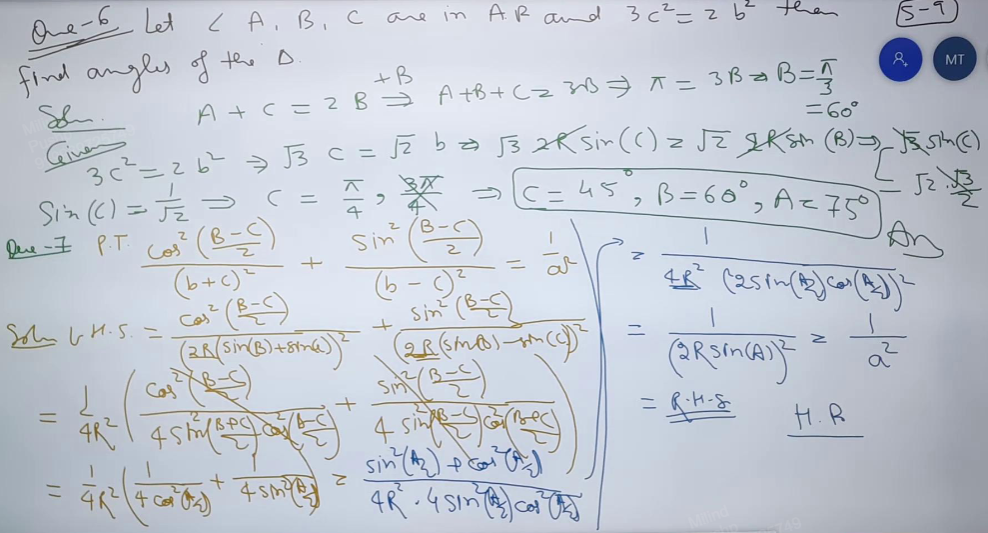 Que-6 Let ∠ A, B, C are in A.P. and 3c² = 2b² then
S-9
find angles of the Δ.
MT
Soln. A + C = 2B ⇒ (+B) A+B+C = 3B ⇒ π = 3B ⇒ B = π/3
= 60°
Given
3c² = 2b² ⇒ √3 c = √2 b ⇒ √3 2R sin(C) = √2 2R sin(B) ⇒ √3 sin(C)
= √2 · √3/2
Sin(C) = 1/√2 ⇒ C = π/4, 3π/4 ⇒ C = 45°, B = 60°, A = 75°
An
Que-7 P.T. cos²((B-C)/2)/(b+c)² + sin²((B-C)/2)/(b-c)² = 1/a²
Soln L.H.S. = cos²((B-C)/2)/(2R(sin(B)+sin(C)))² + sin²((B-C)/2)/(2R(sin(B)-sin(C)))²
= 1/4R² (cos²((B-C)/2)/(4 sin²((B+C)/2) cos²((B-C)/2)) + sin²((B-C)/2)/(4 sin²((B-C)/2) cos²((B+C)/2)))
= 1/4R² (1/(4 cos²(A/2)) + 1/(4 sin²(A/2))) = (sin²(A/2) + cos²(A/2))/(4R² · 4 sin²(A/2) cos²(A/2))
= 1/(4R² (2 sin(A/2) cos(A/2))²)
= 1/(2R sin(A))² = 1/a²
= R.H.S
H.P.